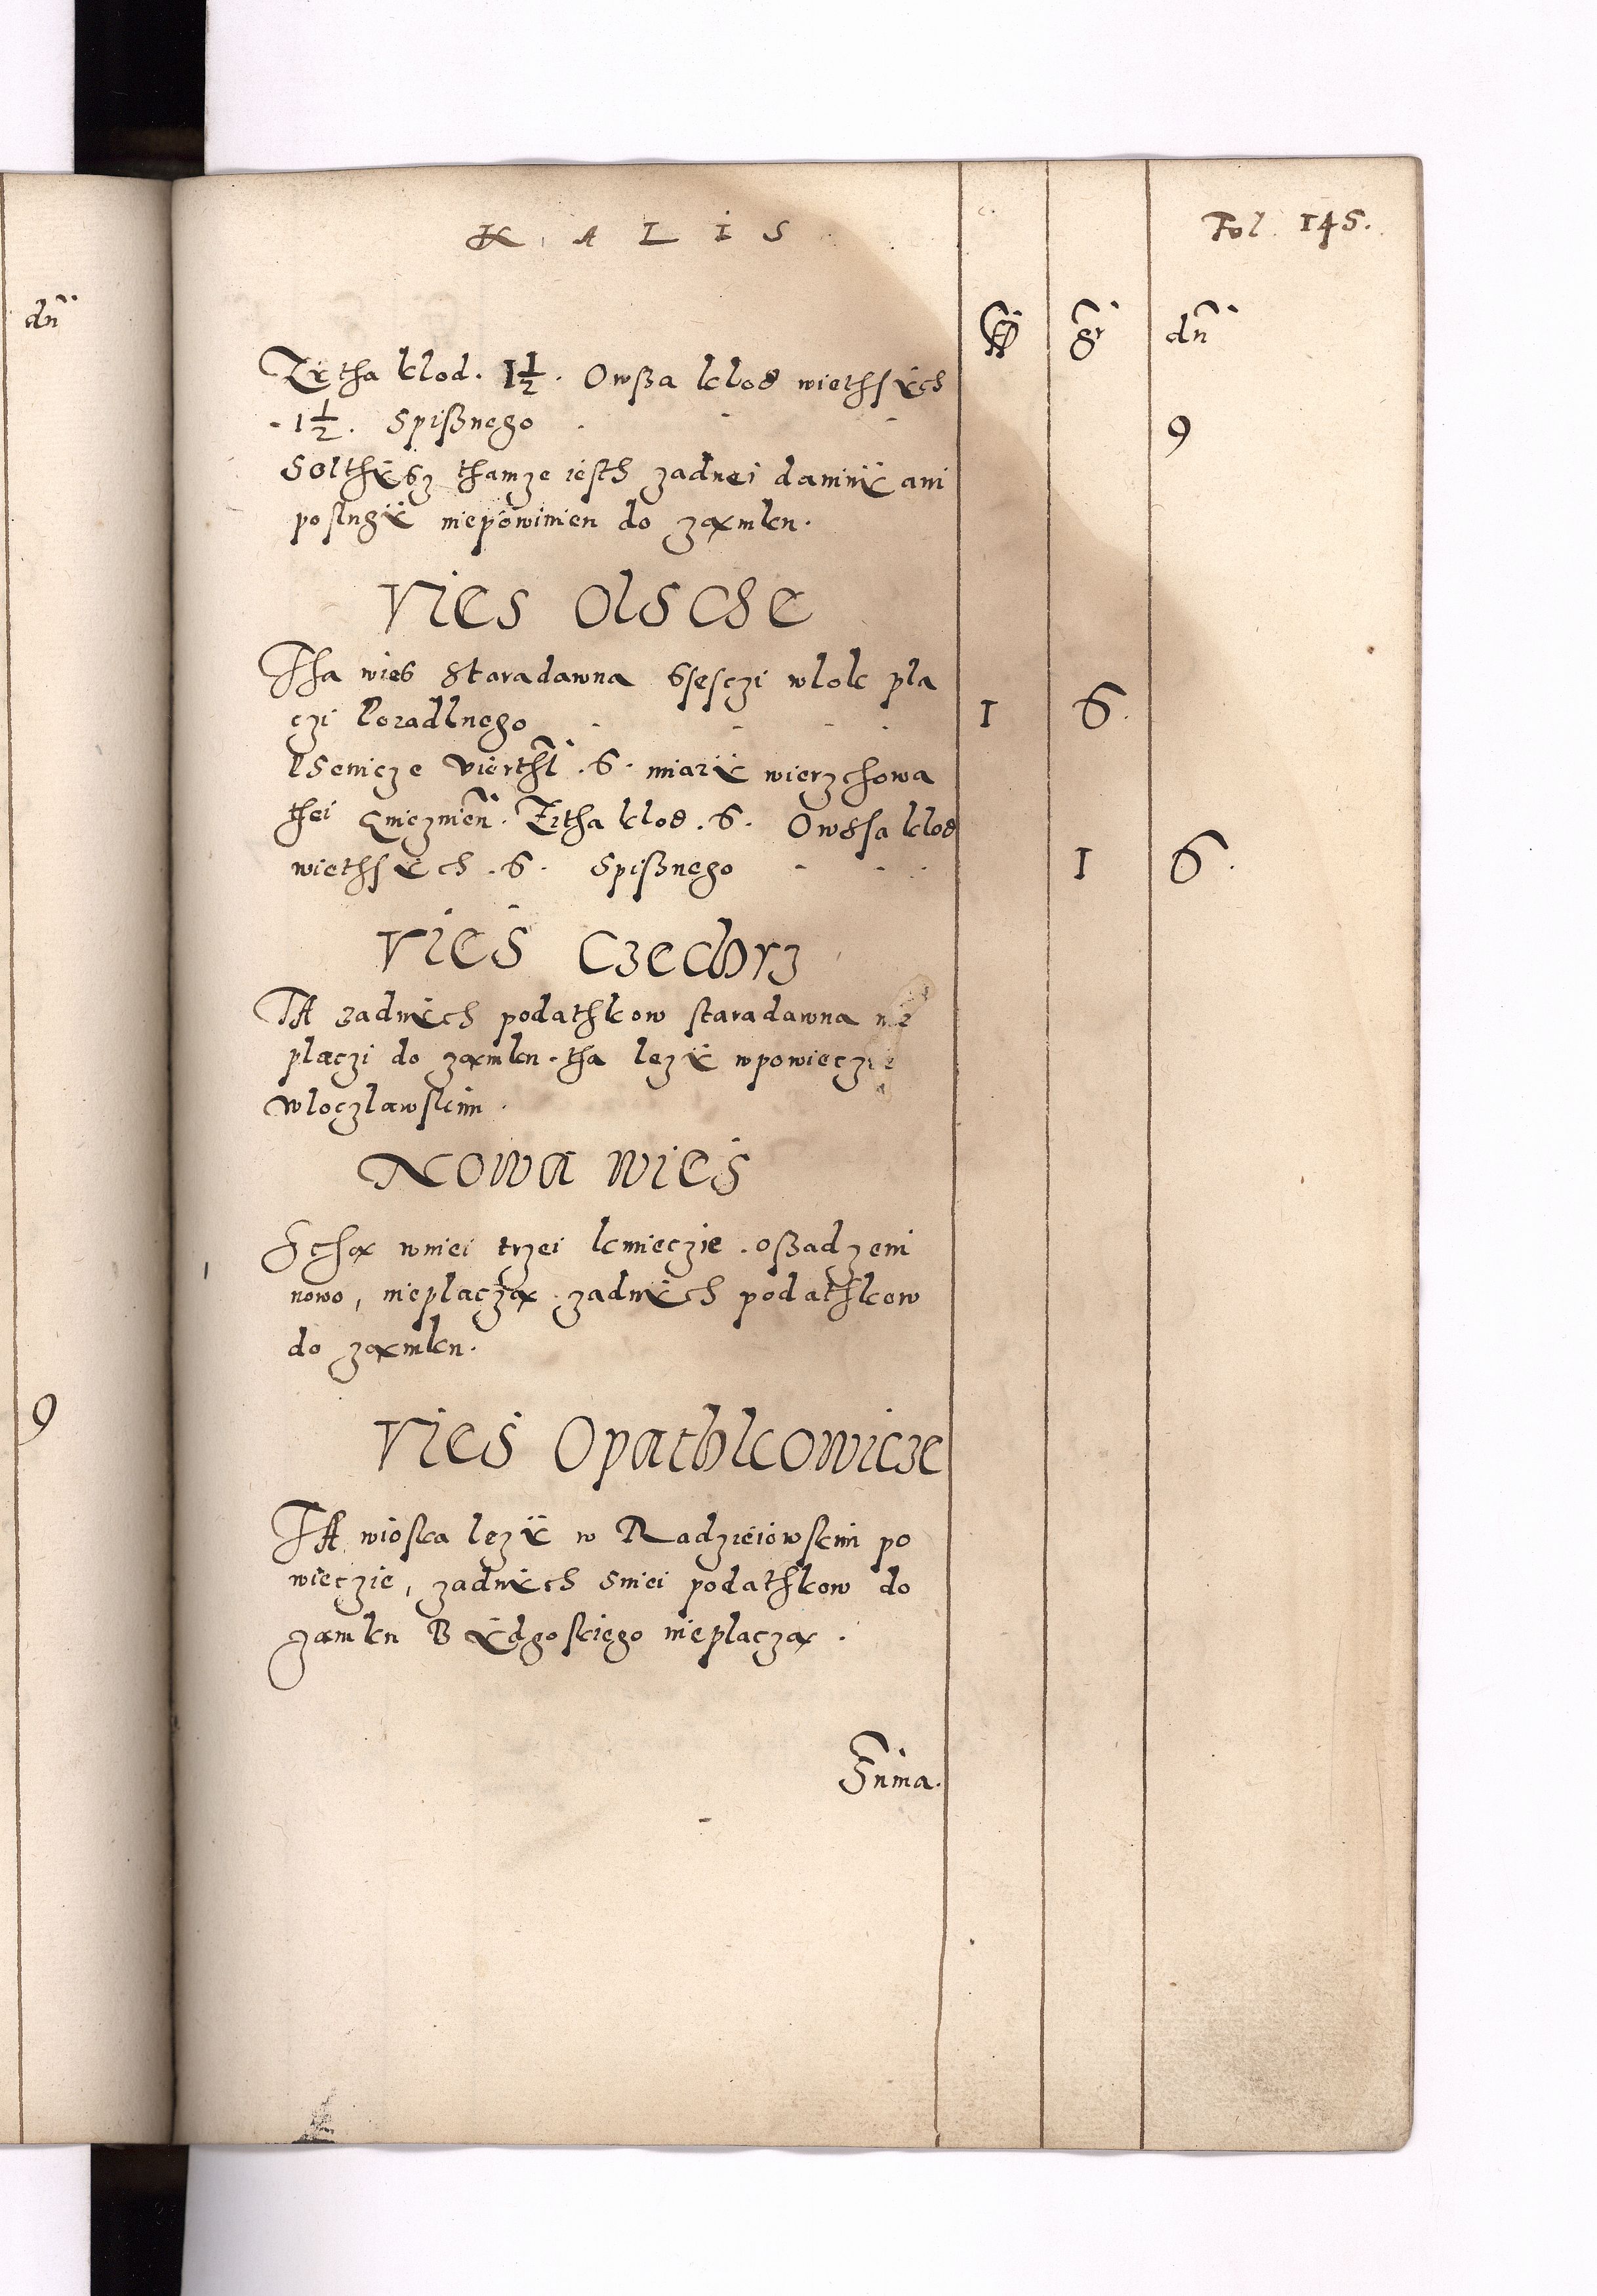 KALIS
Fol. 145.
dn̄
gr
dn̄
Zÿtha klod. 1½. Owßa klod wiethsÿch
- 1½. Spißnego 9
Solthÿsz thamze iesth zadnei daninÿ ani
poslugÿ niepowinien do ząmku.
Vies Olsche
Tha wies staradawna Ssesczi wlok pla
czi Poradlnego 1 6.
Psenicze vierthl .6. miarÿ wierzchowa
thei Gnieznien. Zitha klod .6. Owssa klod
wiethsÿch .6. Spißnego 1 6.
Vies Czechrz
TA zadnÿch podathkow staradawna nie
placzi do zamku. tha lezÿ wpowieczie
Wloczlawskim.
Nowa Wies
Scha wniei trzei kmieczie. oßadzeni
nowo, nieplaczą zadnÿch podathkow
do ząmku.
9
Vies Opathkowicze
TA wioska lezÿ w Radzieiowskim po
wieczie, zadnÿch sniei podathkow do
zamku Bÿdgoskiego nieplaczą.
Suma.